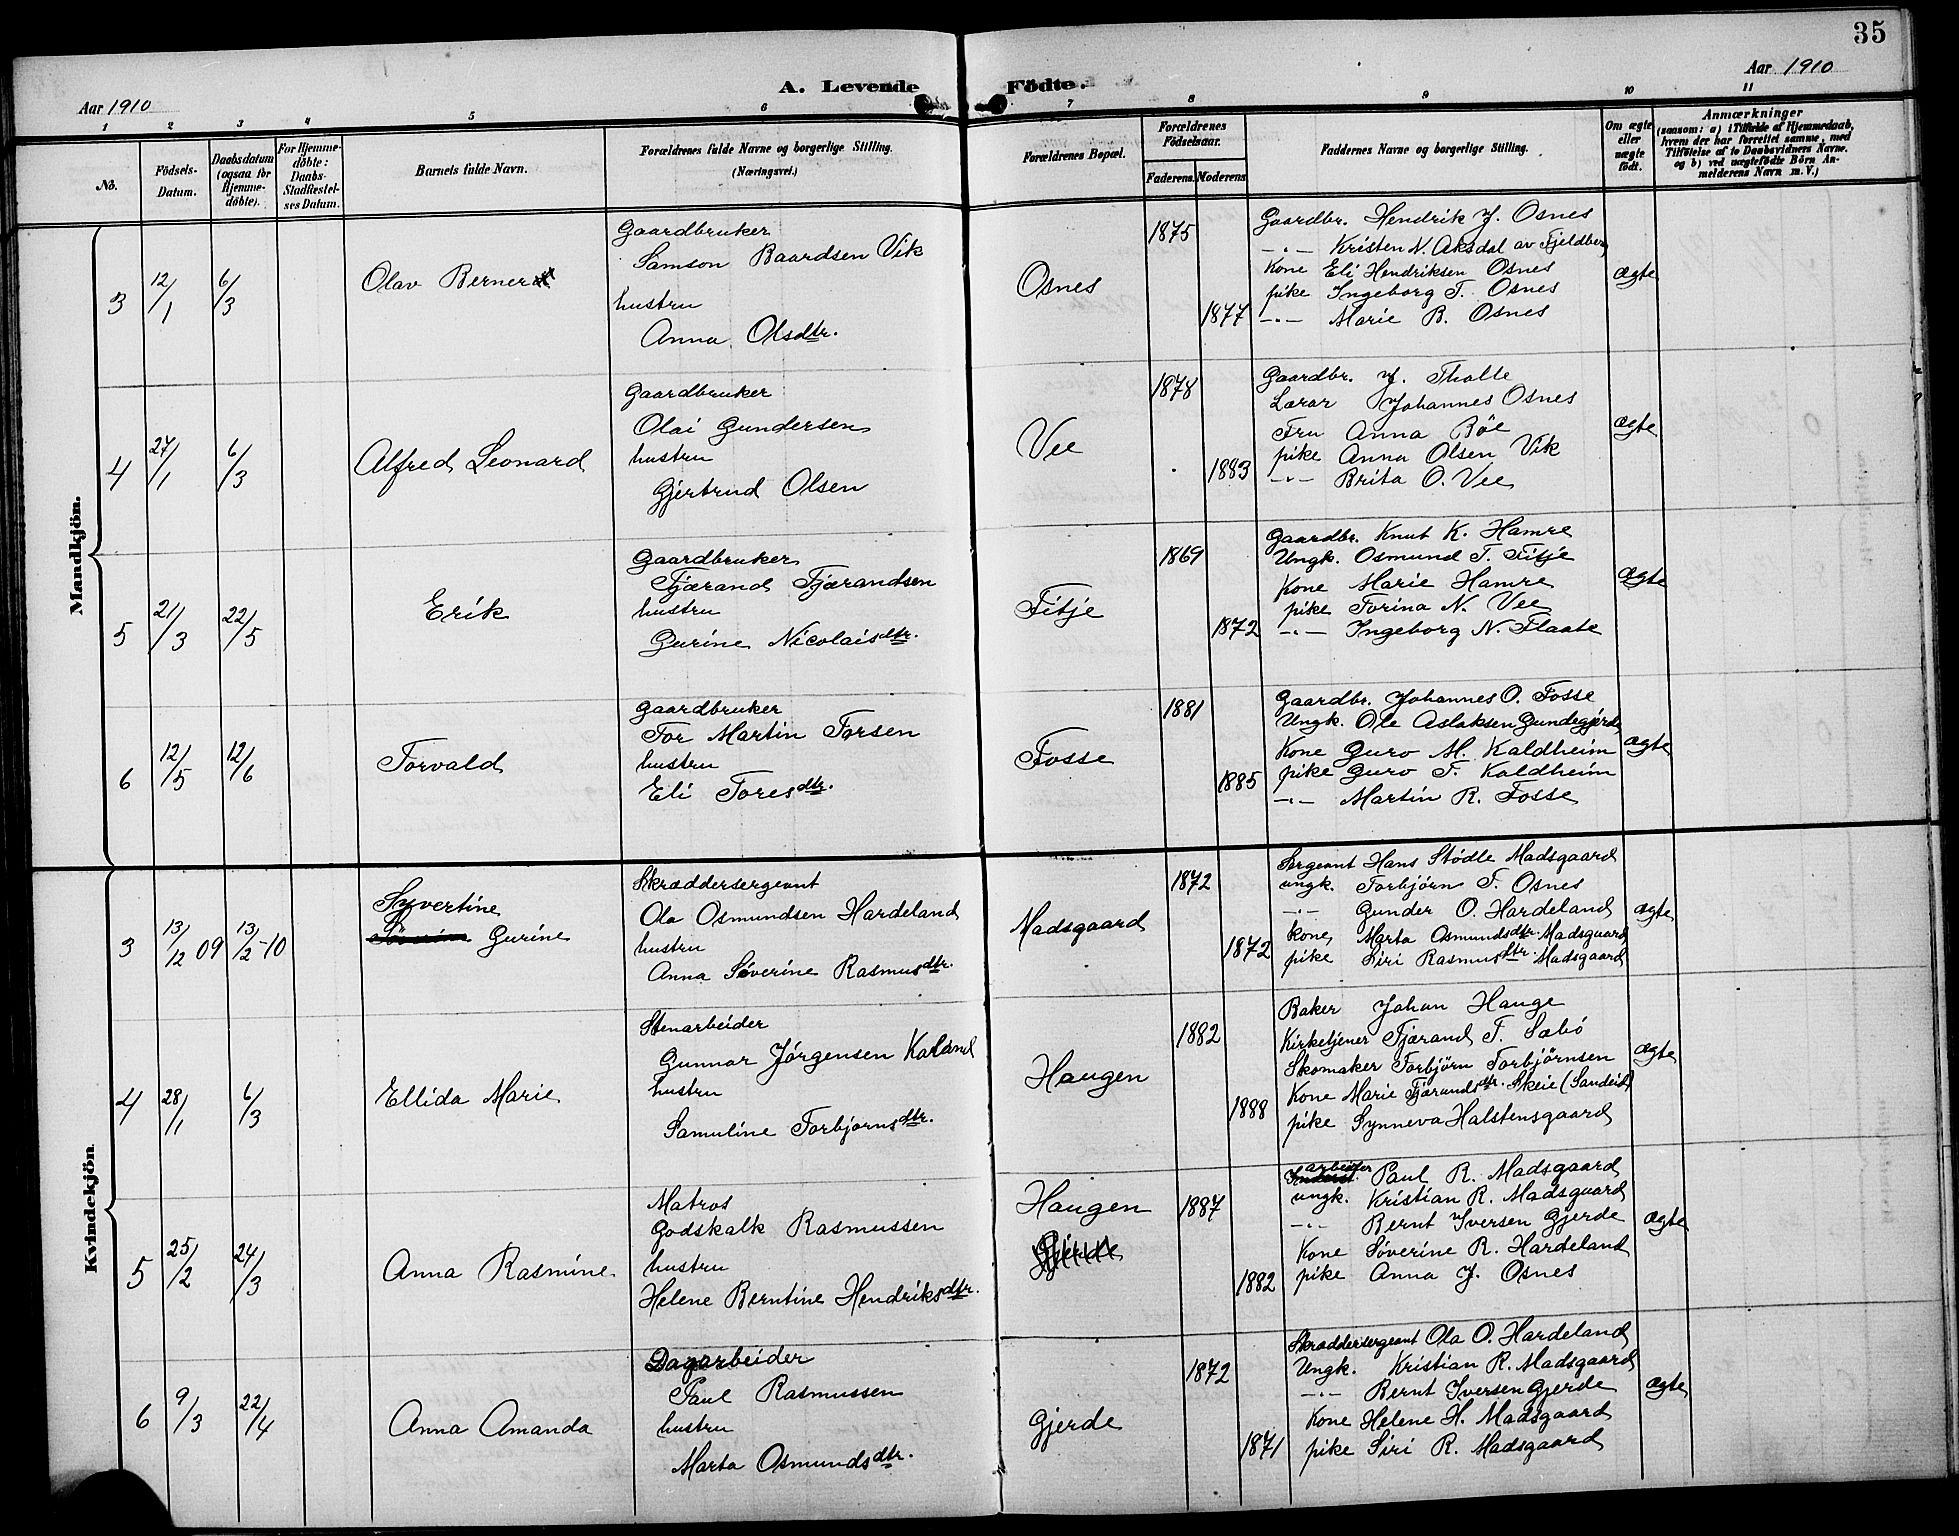 35
Aar 1910
A. Levende Födte.
Aar 1910
1 2 3 4 5 6 7 8 9 10 11
No.
Födsels-
Datum.
Daabsdatum
(ogsaa for
Hjemme-
döbte).
For Hjemme-
döbte:
Daabs-
Stadfæstel-
ses Datum.
Barnets fulde Navn.
Forældrenes fulde Navne og borgerlige Stilling.
(Næringsvei.)
Forældrenes Bopæl.
Forældrenes
Födselsaar.
Faderens. Moderens
Faddernes Navne og borgerlige Stilling.
Om ægte
eller
uægte
födt.
Anmærkninger
(saasom: a) i Tilfælde af Hjemmedaab,
hvem der har forrettet samme, med
Tilföielse af to Daabsvidners Navne.
og b) ved uægtefödte Börn An-
melderens Navn m. V.)
Mandkjön.
3
12/1
6/3
Olav Berner
Gaardbruker
Samson Baardsen Vik
hustru
Anna Olsdtr.
Osnes
1875
1877
Gaardbr. Hendrik J. Osnes
-"- Kristen N. Aksdal av Fjeldberg
Kone Eli Hendriksen Osnes
pike Ingeborg T. Osnes
-"- Marie B. Osnes
ægte
4
27/1
6/3
Alfred Leonard
Gaardbruker
Olai Gundersen
hustru
Gjertrud Olsen
Vee
1878
1883
Gaardbr. J. Tholle
Lærar Johannes Osnes
Fru Anna Bøe
pike Anna Olsen Vik
-"- Brita O. Vee
ægte
5
21/3
22/5
Erik
Gaardbruker
Tjærand Tjærandsen
hustru
Gurine Nicolaisdtr.
Fitje
1869
1872
Gaardbr. Knut K. Hamre
Ungk. Osmund T. Fitje
Kone Marie Hamre
pike Torina N. Vee
-"- Ingeborg N. Flaate
ægte
6
12/5
12/6
Torvald
Gaardbruker
Tor Martin Torsen
hustru
Eli Toresdtr.
Fosse
1881
1885
Gaardbr. Johannes O. Fosse
Ungk. Ole Aslaksen Gundegjerde
Kone Guro M. Kaldheim
pike Guro T. Kaldheim
-"- Martin R. Fosse
ægte
Kvindekjön
3
13/12 09
13/2-10
Syvertine
Gurine
Skræddersergeant
Ola Osmundsen Hardeland
hustru
Anna Søverine Rasmusdtr.
Madsgaard
1872
1872
Sergeant Hans Stødle Madsgaard
ungk. Torbjørn T. Osnes
-"- Gunder O. Hardeland
kone Marta Osmundsdtr. Madsgaard
pike Siri Rasmusdtr. Madsgaard
ægte
4
28/1
6/3
Ellida Marie
Stenarbeider
Gunnar Jørgensen Kaland
hustru
Samuline Torbjørnsdtr.
Haugen
1882
1888
Baker Johan Hauge
Kirketjener Tjærand T. Sæbö
Skomaker Torbjörn Torbjörnsen
Kone Marie Tjærandsdtr. Skeie (Sandeid)
pike Synneva Halstensgaard
ægte
5
25/2
24/3
Anna Rasmine
Matros
Godskalk Rasmussen
hustru
Helene Berntine Hendriksdtr.
Haugen
Gjerde
1887
1882
arbeider
Inderst. Paul R. Madsgaard
ungk. Kristian R. Madsgaard
-"- Bernt Iversen Gjerde
Kone Søverine R. Hardeland
pike Anna J. Osnes
ægte
6
9/3
22/4
Anna Amanda
Dagarbeider
Paul Rasmussen
hustru
Marta Osmundsdtr.
Gjerde
1872
1871
Skræddersergeant Ola O. Hardeland
Ungk. Kristian R. Madsgaard
-"- Bernt Iversen Gjerde
Kone Helene H. Madsgaard
pike Siri R. Madsgaard
ægte